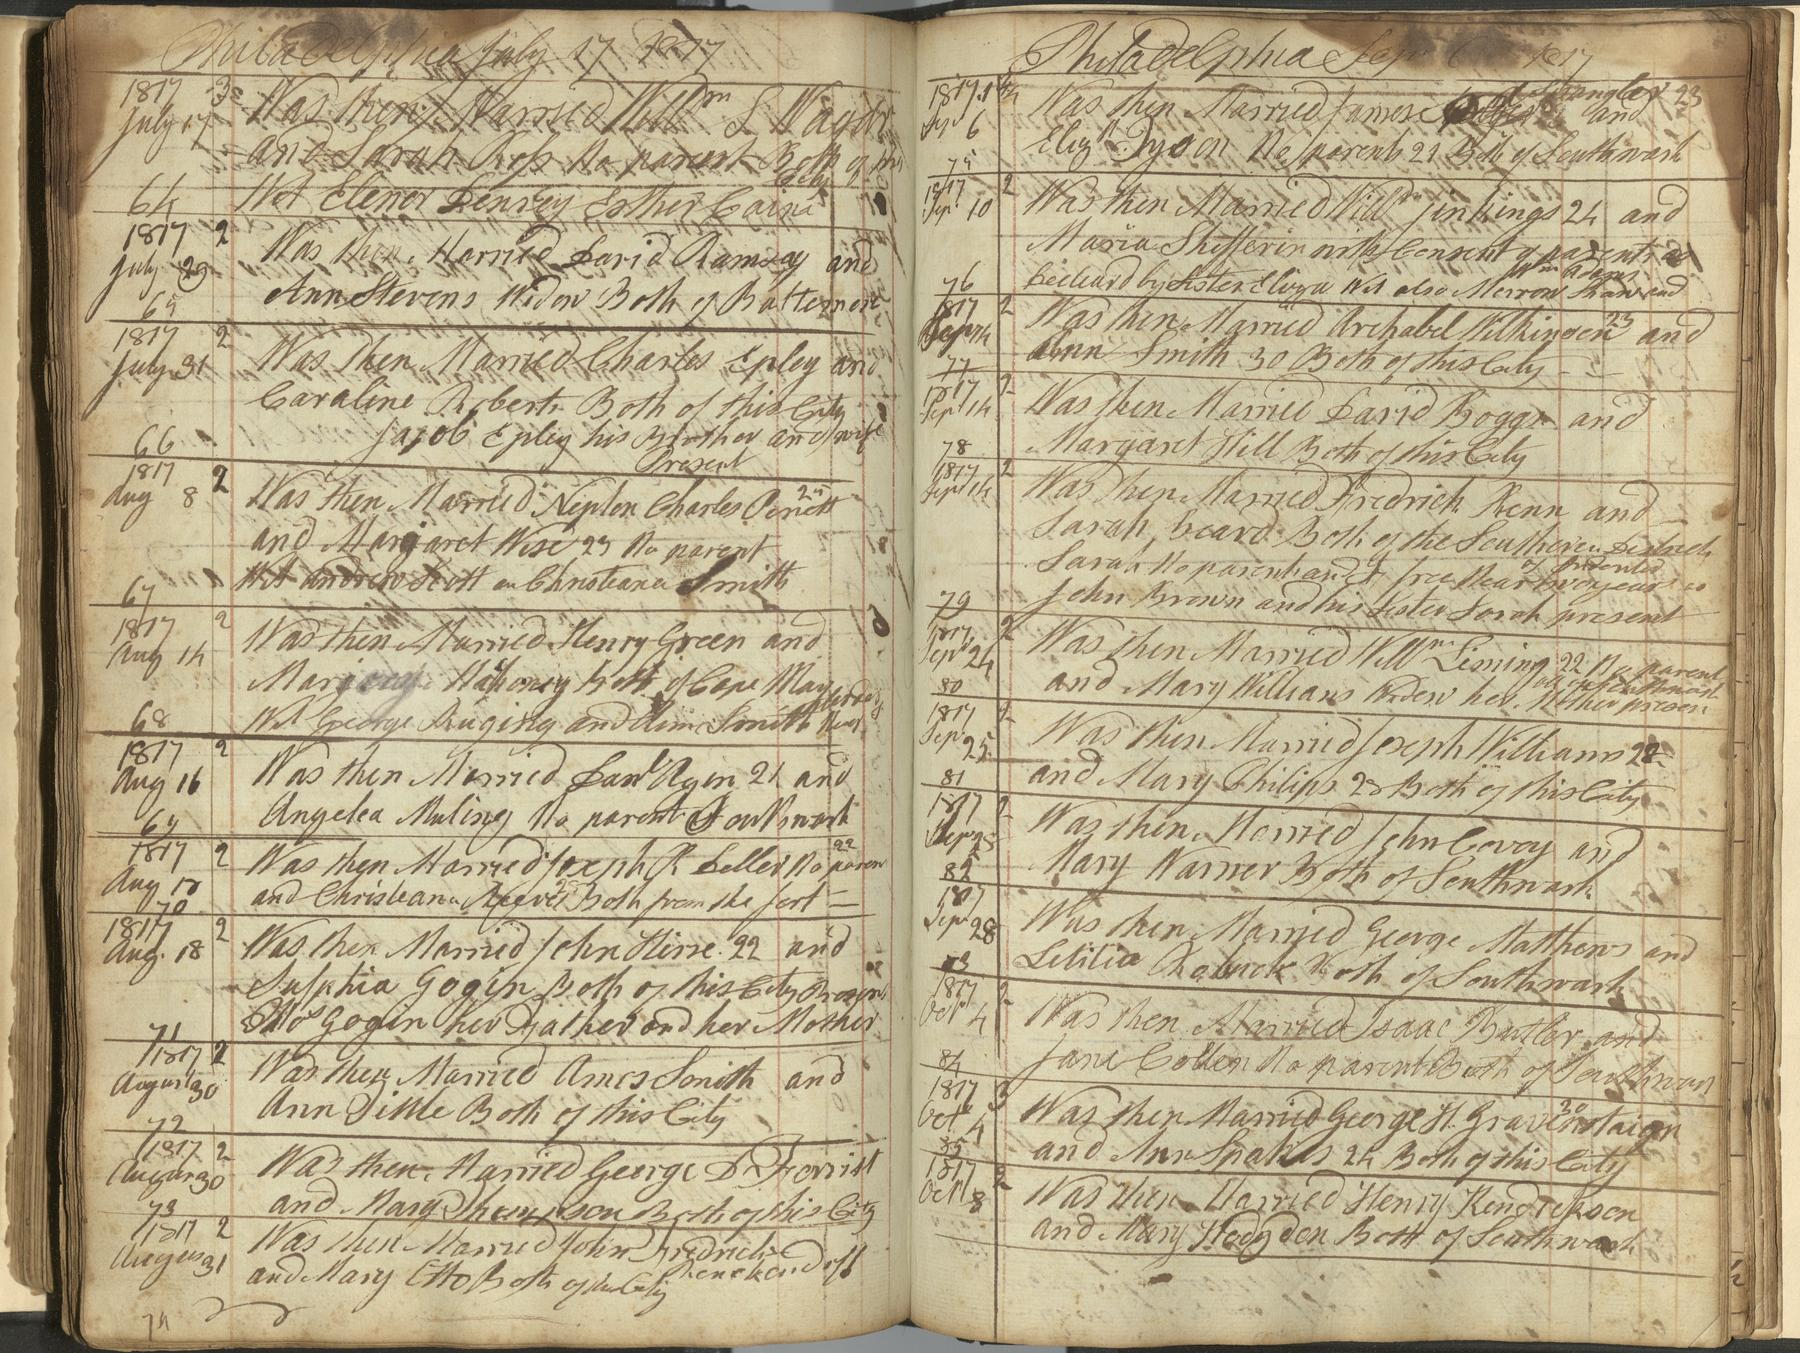 Philadelphia July 17 1817
1817 3
July 17 Was then Married Willm S
and Sarah Ross No parent Both of this
City
64 Wit Elener Denrey Esther Caine
1817 2
July 29 Was then Married David Ramsay and
Ann Stevens Widow Both of Baltemore
65
1817 2
July 31 Was then Married Charles Epley and
Caraline Roberts Both of this City
66 Jacob Epley his Brother and wife
Present
1817 2
Aug 8 Was then Married Charles
and Margaret Wise 23 No parent
67 Wit Andrew Scott an Christeana Smith
1817 2
Aug 14 Was then Married Henry Green and
Mahoney both of Cape May
68 Wit George and Smith
1817 2
Aug 16 Was then Married Danl 21 and
Angelea No parent Southwark
69
1817 2 22
Aug Was then Married Joseph R No paren
and Christeana Both from the fort
70
1817 2
Aug. 18 Was then Married John 22 and
Sulphia Gogin Both of this City Present
71 Gogin her Father and her Mother
1817 2
August 30 Was then Married Amos Smith and
Ann Both of this City
72
1817 2
August 30 Was then Married George D Forrist
and Mary Both of this City
73
1817 2
August 31 Was then Married John Fredrick
and Mary Otto Both of this City
74
Philadelphia Sep 6 1817
1817
Sep 6 Was then Married James Spangler 23 and
Elizh Tyson No parents 21 Both of Southwark
75
1817 2
Sep 10 Was then Married Willm Jinkings 24 and
Maria with Consent of parents as
Wm Adams
76 by Sister Eliza Wit also and
1817 2 23
Sep 14 Was then Married Archabel Wilkinson and
Ann Smith 30 Both of this City
77
1817 2
Sept 14 Was then Married David Boggs and
Margaret Hill Both of this City
78
1817 2
Sept 14 Was then Married Fredrick Renn and
Sarah Beard Both of the Southeren
Sarah No parent and free Near two years
79 John Brown and his Sister Sarah present
1817 2
Sept 24 Was then Married Willm Liming 22 No parent
80 and Mary Williams Widow her Mother present
1817 2
Sept 25 Was then Married Joseph Williams 22
81 and Mary Philips 23 Both of this City
1817 2
Sep 28 Was then Married John Covoy and
82 Mary Warner Both of Southwark
1817
Sept 28 Was then Married George Matthews and
Letitia Both of Southwark
83
1817 2
Oct 4 Was then Married Isaac Butler and
84 Jane No parent Both of Southwark
1817 3 20
Oct 4 Was then Married George H.
85 and Ann 24 Both of this City
1817 2
Oct 8 Was then Married Henry Kendrickson
and Mary Hodgden Both of Southwark